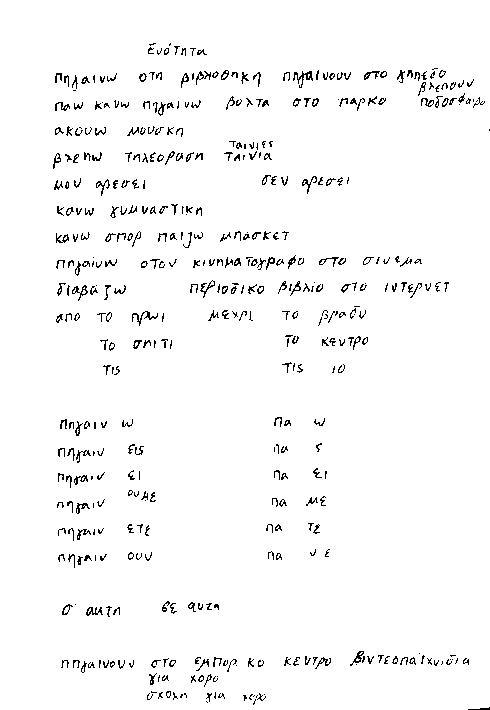 Ενότητα
πηγαινω στη βιβλιοθηκη πηγαινουν στο γηπεδο
βλεπουν
παω κανω πηγαινω βολτα στο παρκο ποδοσφαιρο
ακουω μουσκη
ταινιες
βλεπω τηλεοραση ταινια
μου αρεσει δεν αρεσει
κανω γυμναστικη
κανω σπορ παιζω μπασκετ
πηγαινω στον κινηματογραφο στο σινεμα
διαβαζω περιοδικο βιβλιο στο ιντερνετ
απο το πρωι μεχρι το βραδυ
το σπιτι το κεντρο
τις τις 10
πηγαιν ω πα ω
πηγαιν εις πα ς
πηγαιν ει πα ει
πηγαιν ουμε πα με
πηγαιν ετε πα τε
πηγαιν ουν πα νε
σ' αυτη σε αυτη
πηγαινουν στο εμπορ κο κεντρο βιντεοπαιχνιδια
για χορο
σχολη για χορο